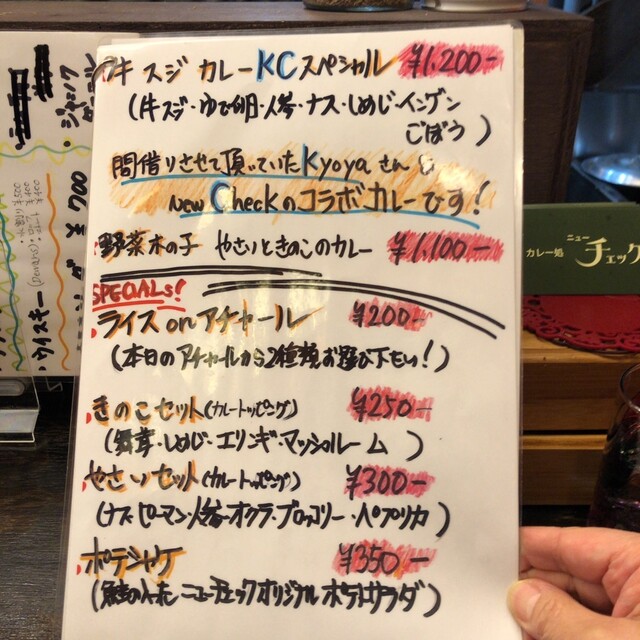 牛スジカレーKCスペシャル ¥1.200-
(牛スジ・ゆで卵・人参・ナス・しめじ・インゲン
ごぼう)
間借りさせて頂いていたKyoyaさん&
new Checkのコラボカレーです!
野菜木の子 やさいときのこのカレー ¥1.100-
SPECIALS!
ライスonアチャール ¥200-
(本日のアチャールから2種類お選び下さい!)
きのこセット(カレートッピング) ¥250-
(舞茸・しめじ・エリンギ・マッシュルーム)
やさいセット(カレートッピング) ¥300-
(ナス・ピーマン・人参・オクラ・ブロッコリー・パプリカ)
ポテシャケ ¥350-
(鮭の入った ニューチェックオリジナル ポテトサラダ)
¥700
・ウイスキー
カレー処
ニュー
チェック